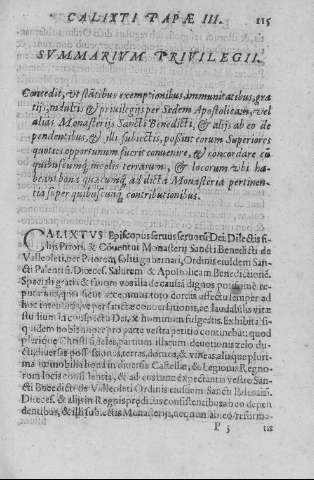 CALIXTI PAPÆ III. 115
SVMMARIVM PRIVILEGII.
Concedit, vt stātibus exemptionibus, immunitatibus, gra
tijs, indultis & priuilegijs per Sedem Apostolicam, vel
alias Monasterijs Sancti Benedicti, & alijs ab eo de
pendentibus, & illi subiectis, possint eorum Superiores
quoties opportunum fuerit conuenire, & concordare cū
quibuscūmq; incolis terrarum, & locorum vbi ha-
beant bona quæcūmq; ad dicta Monasteria pertinen-
tia super quibuscūq; contributionibus.
CALIXTVS Episcopus seruus seruorū Dei. Dilectis fi-
lijs Priori, & Cōuentui Monasterij Sancti Benedicti de
Valleoleti, per Priorem solliti gubernari, Ordinis eiusdem San-
cti Palentiñ. Diœces. Salutem & Apostolicam Benedictionē.
Specijali gratia & fauore vos illa de causa dignos
putamus, quo sicut accepimus toto cordis affectu semper ad
hoc intenditis, vt in regulari obseruantia, ac laudabilis vitæ
studium in conspectu Dei, & hominum fulgeatis. Exhibita si-
quidem nobis nuper pro parte vestra petitio continebat: quod
plerique Christi fideles, partim illarum deuotionis zelo du-
cti, diuersas possessiones, terras, domos, & vineas, aliaque pluri-
ma immobilia bona in diuersis Castellæ, & Legionis Regno-
rum locis consistentia, & ad
cti Benedicti de Valleoleti Ordinis eiusdem Sancti
Diœces. & alijs in Regnis prædictis consistentibus ab eo depen
dentibus, & illi subiectis Monasterijs, necnon ab eo, reforma-
P 3 tis